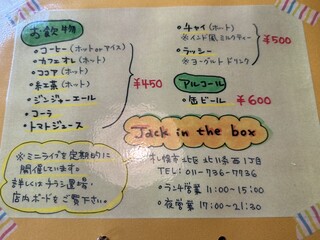 お飲物
・コーヒー(ホット or アイス)
・カフェオレ(ホット)
・ココア(ホット)
・紅茶(ホット)
・ジンジャーエール
・コーラ
・トマトジュース
¥450
・チャイ(ホット)
※インド風ミルクティー
・ラッシー
※ヨーグルトドリンク
¥500
アルコール
・缶ビール ¥600
Jack in the box
※ミニライブを定期的に
開催しています。
詳しくはチラシ置場・
店内ボードをご覧下さい。
札幌市北区北11条西1丁目
TEL: 011-736-7736
・ランチ営業 11:00-15:00
・夜営業 17:00-21:30